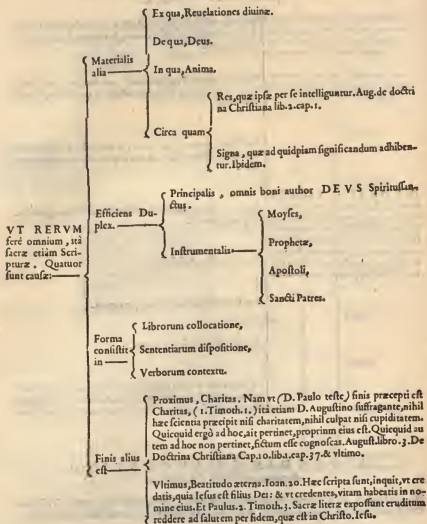 VT RERVM
ferè omnium, ità
sacræ etiàm Scri-
pturæ, Quatuor
sunt causæ:
Materialis
alia
Ex qua, Reuelationes diuinæ.
De qua, Deus.
In qua, Anima.
Circa quam
Res, quæ ipsæ per se intelliguntur. Aug. de doctri
na Christiana lib. 2. cap. 1.
Signa, quæ ad quidpiam significandum adhiben-
tur. Ibidem.
Efficiens Du-
plex.
Principalis, omnis boni author DEVS Spiritussan-
ctus.
Instrumentalis
Moyses,
Prophetæ,
Apostoli,
Sancti Patres.
Forma
consistit
in
Librorum collocatione,
Sententiarum dispositione,
Verborum contextu.
Finis alius
est
Proximus, Charitas. Nam vt (D. Paulo teste) finis præcepti est
Charitas, (1. Timoth. 1.) ità etiam D. Augustino suffragante, nihil
hæc scientia præcipit nisi charitatem, nihil culpat nisi cupiditatem.
Quicquid ergò ad hoc, ait pertinet, proprium eius est. Quicquid au
tem ad hoc non pertinet, fictum esse cognoscas. August. libro. 3. De
Doctrina Christiana Cap. 10. lib. 1. cap. 37. & vltimo.
Vltimus, Beatitudo æterna. Ioan. 20. Hæc scripta sunt, inquit, vt cre
datis, quia Iesus est filius Dei: & vt credentes, vitam habeatis in no-
mine eius. Et Paulus 2. Timoth. 3. Sacræ literæ expossunt eruditum
reddere ad salutem per fidem, quæ est in Christo. Iesu.